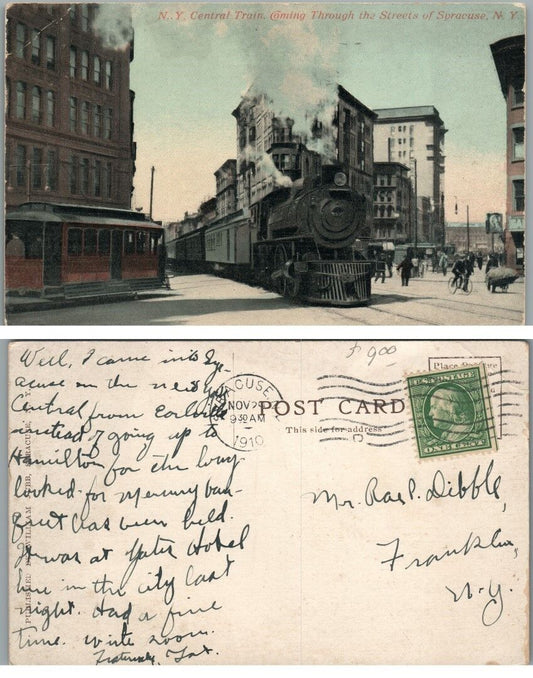 N. Y. Central Train, Coming Through the Streets of Syracuse, N. Y.
$ 9.00
Well, I came into Syr-
acuse on the new York
Central from Earlville
instead of going up to
Hamilton for the long
looked-for Mercury ban-
quet has been held.
It was at Yates Hotel
here in the city last
night. Had a fine
time. Write soon.
Fraternally,
SYRACUSE
NOV 29
9 30 AM
1910
POST CARD
This side for address
Place Postage
U.S. POSTAGE
ONE CENT
Mr. Rae P. Dibble,
Franklin,
N.Y.